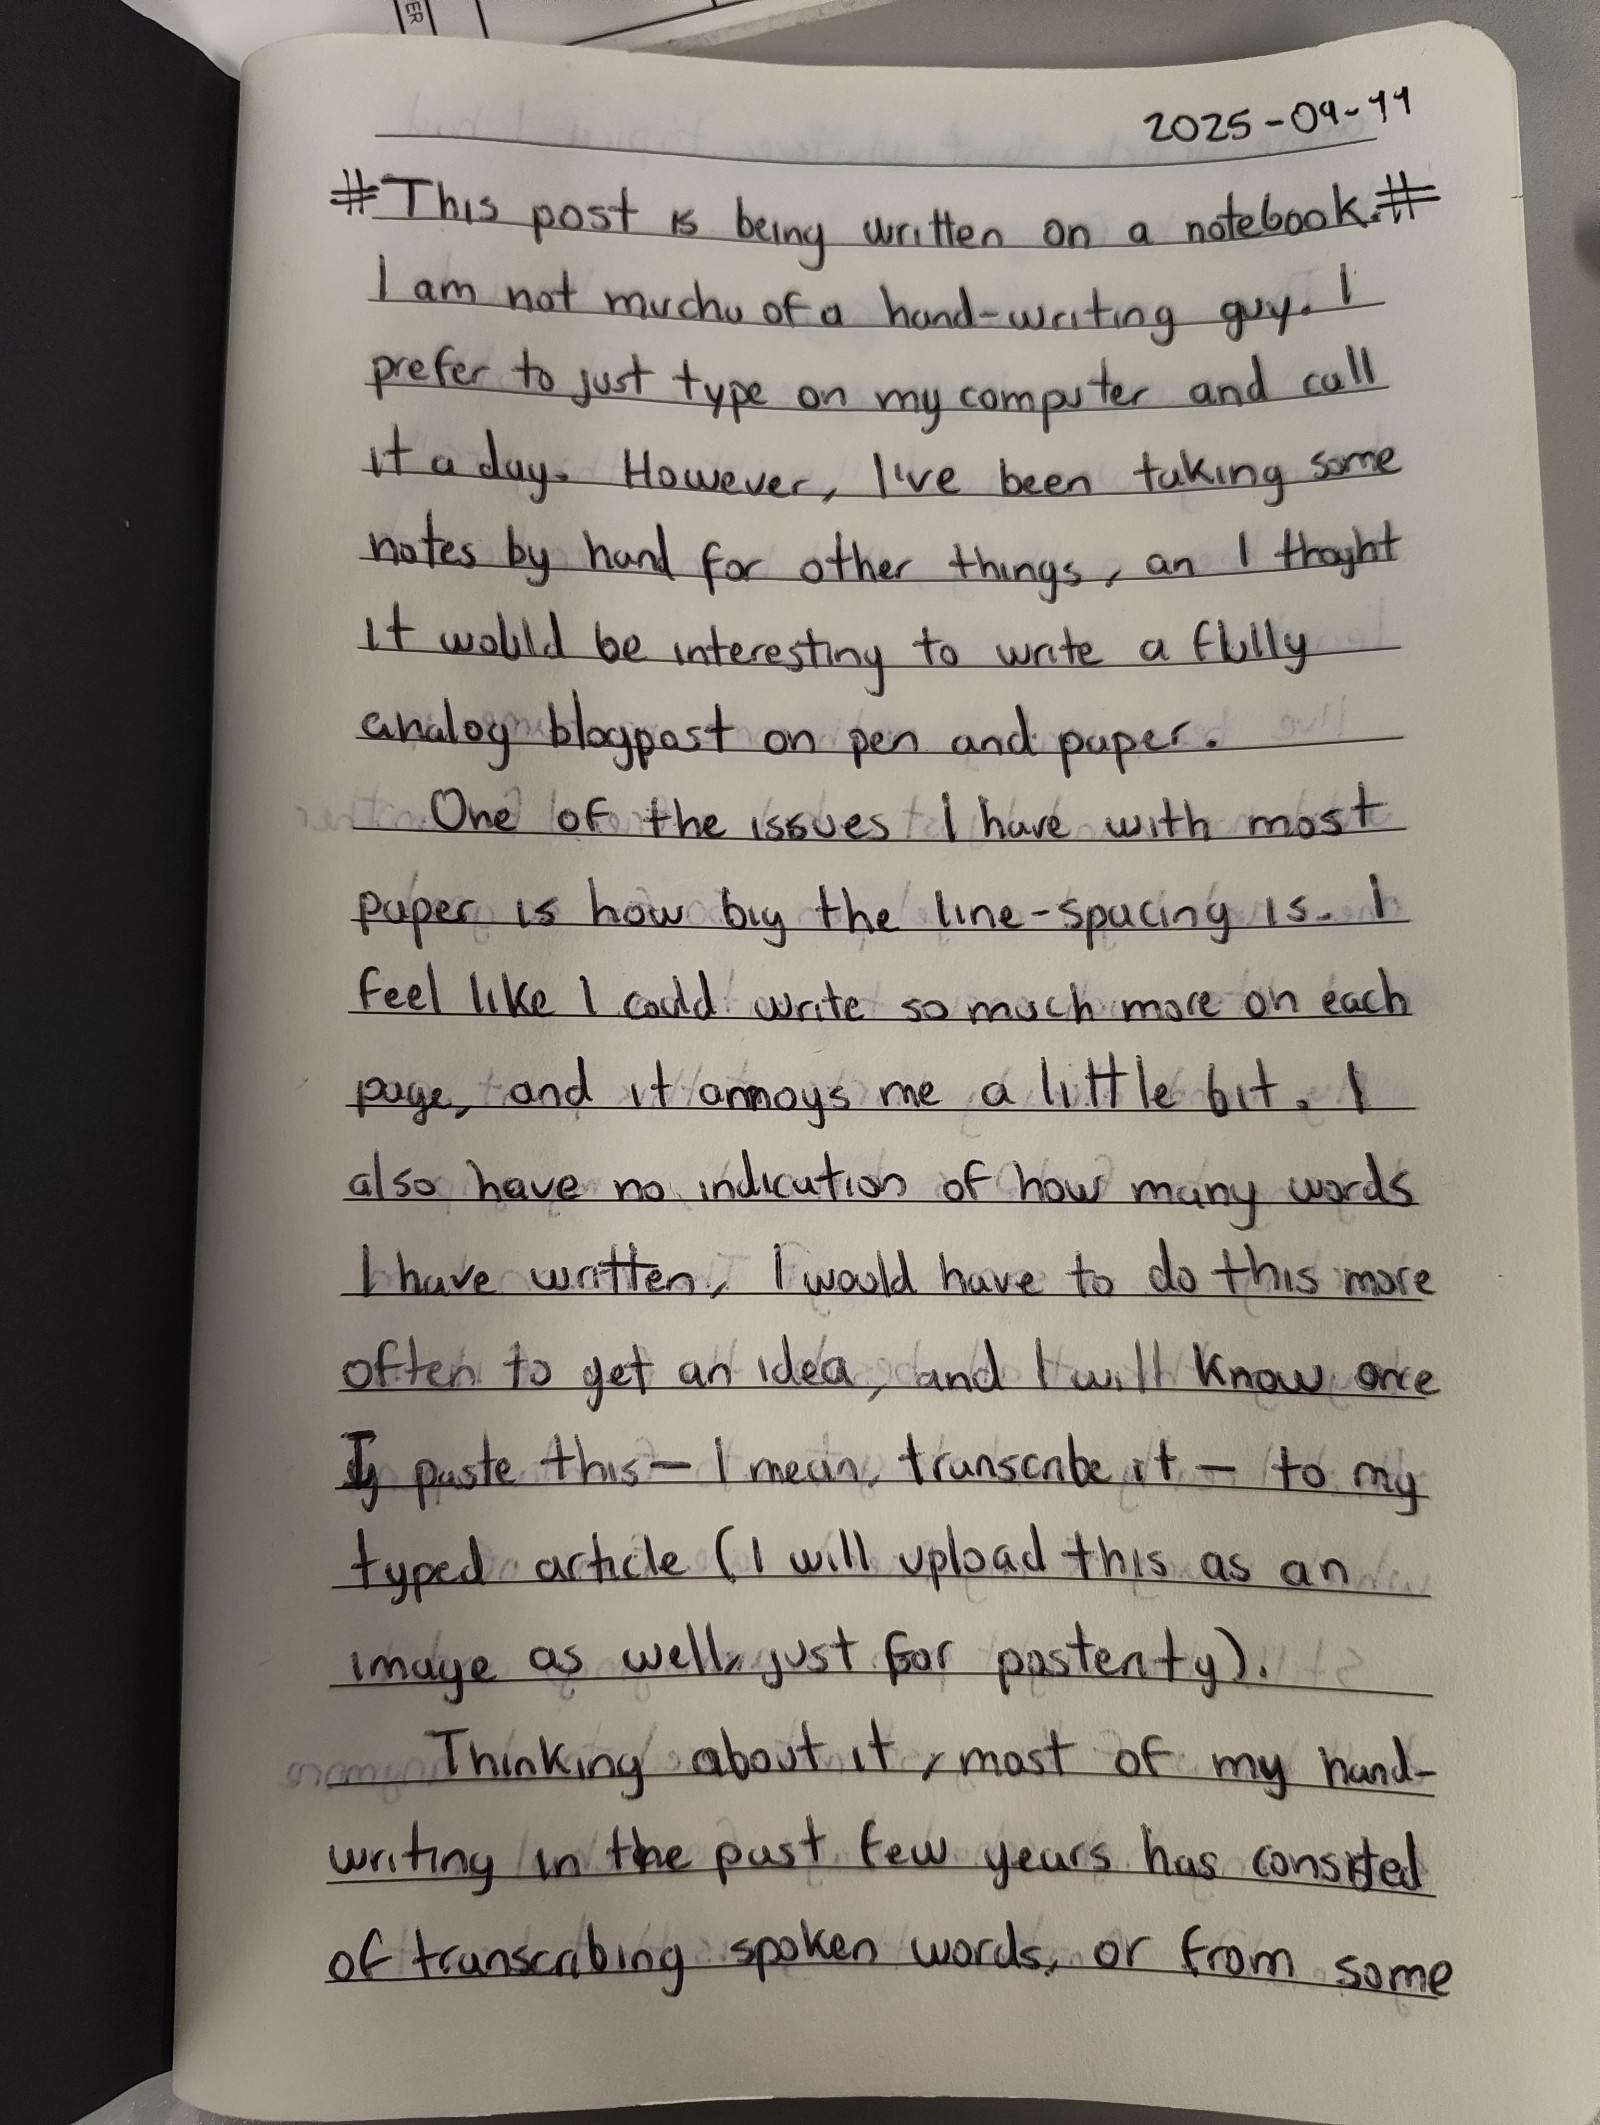 ER
2025-09-11
#This post is being written on a notebook.#
I am not muchu of a hand-writing guy. I
prefer to just type on my computer and call
it a day. However, I've been taking some
notes by hand for other things, an I thoght
it would be interesting to write a fully
analog blogpost on pen and paper.
One of the issues I have with most
paper is how big the line-spacing is. I
feel like I could write so much more on each
page, and it annoys me a little bit. I
also have no indication of how many words
I have written, I would have to do this more
often to get an idea, and I will know once
I paste this — I mean, transcribe it — to my
typed article (I will upload this as an
image as well, just for posterity).
Thinking about it, most of my hand-
writing in the past few years has consisted
of transcribing spoken words, or from some